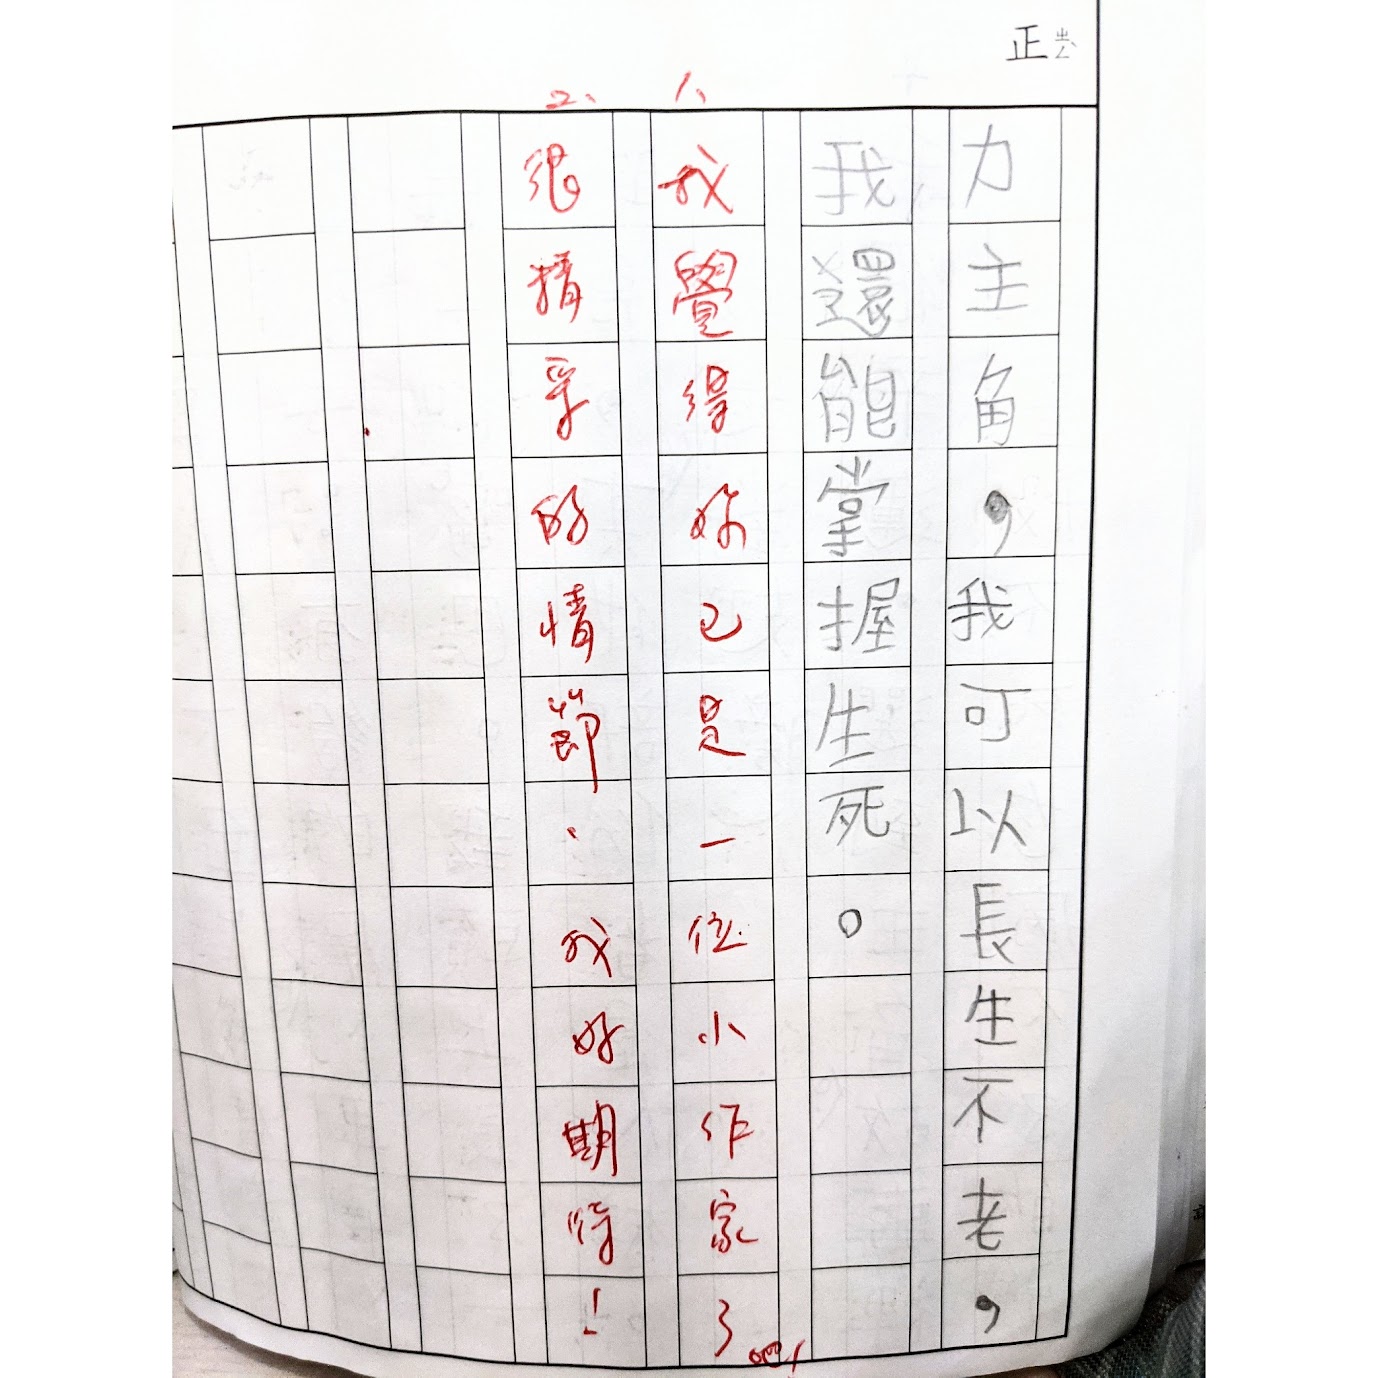 正
力主角，我可以長生不老，
我還能掌握生死。
1、
我覺得妳已是一位小作家了吧！
2、
很精采的情節、我好期待！